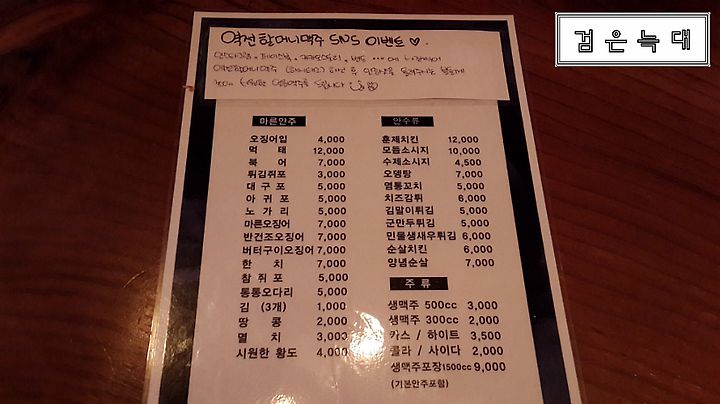 검은늑대
역전할머니맥주 SNS 이벤트 ♡.
역전할머니맥주
마른안주
오징어입 4,000
먹태 12,000
북어 7,000
튀김쥐포 3,000
대구포 5,000
아귀포 5,000
노가리 5,000
마른오징어 7,000
반건조오징어 7,000
버터구이오징어 7,000
한치 7,000
참쥐포 5,000
통통오다리 5,000
김 (3개) 1,000
땅콩 2,000
멸치 3,000
시원한 황도 4,000
안주류
훈제치킨 12,000
모듬소시지 10,000
수제소시지 4,500
오뎅탕 7,000
염통꼬치 5,000
치즈감튀 6,000
김말이튀김 5,000
군만두튀김 5,000
민물생새우튀김 6,000
순살치킨 6,000
양념순살 7,000
주류
생맥주 500cc 3,000
생맥주 300cc 2,000
카스 / 하이트 3,500
콜라 / 사이다 2,000
생맥주포장1500cc 9,000
(기본안주포함)